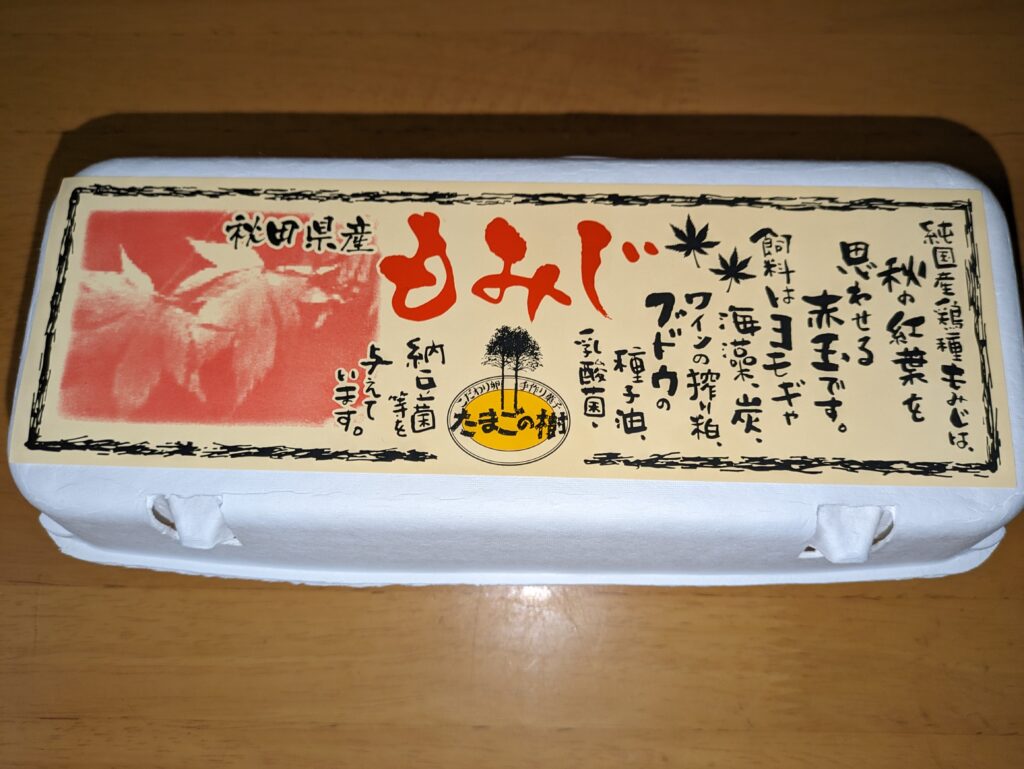 秋田県産
もみじ
純国産鶏種もみじは、
秋の紅葉を
思わせる
赤玉です。
飼料はヨモギや
海藻、炭、
ワインの搾り粕、
ブドウの
種子油、
乳酸菌、
納豆菌
等を
与えて
います。
こだわり卵 手作り菓子
たまごの樹